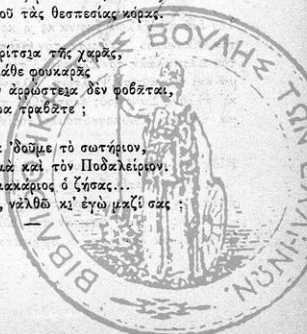 οῦ τὰς θεσπεσίας κόρας.
ρίτσια τῆς χαρᾶς,
άθε φουκαρᾶς
ἀρρώστεια δὲν φοβᾶται,
ρα τραβᾶτε ;
'δοῦμε τὸ σωτήριον,
μὰ καὶ τὸν Ποδαλείριον.
ιακάριος ὁ ζήσας...
, νἀλθῶ κι' ἐγὼ μαζί σας ;
ΒΟΥΛΗΣ ΤΩΝ
ΒΙΒΛ
ΗΝΩΝ